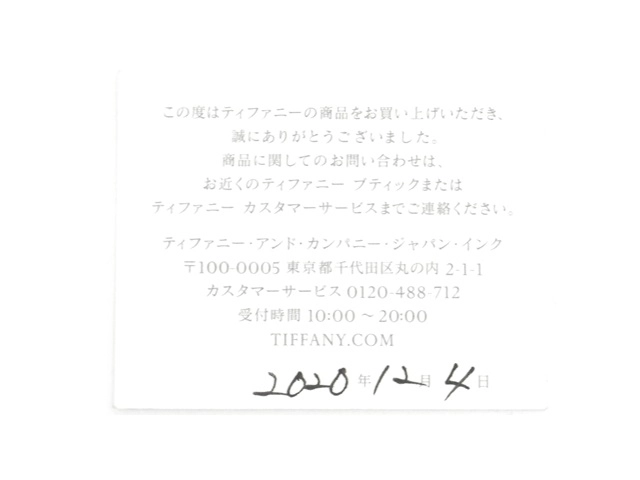 この度はティファニーの商品をお買い上げいただき、
誠にありがとうございました。
商品に関してのお問い合わせは、
お近くのティファニー ブティックまたは
ティファニー カスタマーサービスまでご連絡ください。
ティファニー・アンド・カンパニー・ジャパン・インク
〒100-0005 東京都千代田区丸の内 2-1-1
カスタマーサービス 0120-488-712
受付時間 10:00 〜 20:00
TIFFANY.COM
2020年12月4日